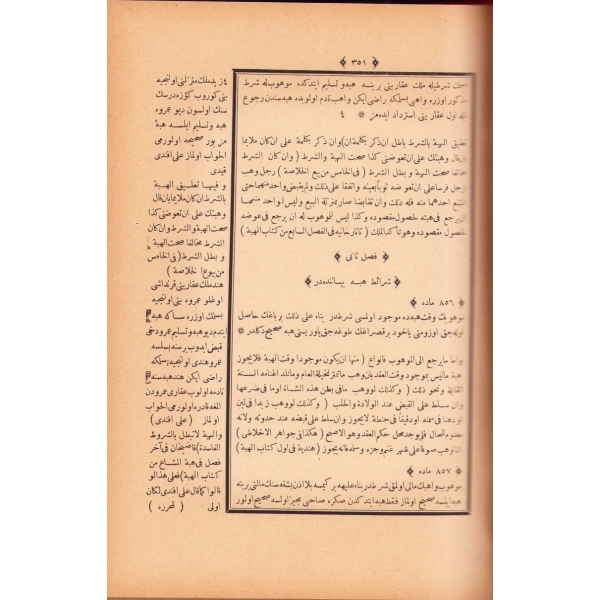 ﴿ ٣٥١ ﴾
بسلمك شرطيله ملك عقارينى برينه هبه و تسليم ايتدكده موهوب له شرط
مذكور اوزره واهبى بسلمكه راضى ايكن واهب نادم اولوبده هبه سندن رجوع
ايله اول عقارينى استرداد ايده مز * ٤
تعليق الهبة بالشرط باطل ان ذكر بكلمة ان وان ذكر بكلمة على ان كان ملايما
بان قال وهبتك على ان تعوضنى كذا صحت الهبة والشرط ( وان كان الشرط
مخالفا صحت الهبة وبطل الشرط ( فى الخامس من بيع الخلاصة ) رجل وهب
لرجل فرسا على ان تعوضه ثوبا بعينه واتفقا على ذلك ولم يقبض واحد منهما حتى
امتنع احدهما منه فله ذلك وان تقابضا صار بمنزلة البيع وليس لواحد منهما
ان يرجع فى هبته لحصول مقصوده و كذا ليس للموهوب له ان يرجع فى عوضه
لحصول مقصوده وهو تأكد الملك ( تاتارخانيه فى الفصل السابع من كتاب الهبة )
﴿ فصل ثانى ﴾
﴿ شرائط هبه بياننده در ﴾
﴿ ٨٥٦ ماده ﴾
موهوبك وقت هبه ده موجود اولمسى شرطدر بناء على ذلك بر باغك حاصل
اوله جق اوزومنى ياخود بر قصراغك طوغه جق ياورييسنى هبه صحيح دكلدر *
واما ما يرجع الى الموهوب فانواع ( منها ان يكون موجودا وقت الهبة فلا يجوز
هبة ما ليس بموجود وقت العقد بان وهب ما تثمر نخيله العام وما تلد اغنامه السنة
القابلة ونحو ذلك ( وكذلك لو وهب ما فى بطن هذه الشاة او ما فى ضرعها
وان سلط على القبض عند الولادة والحلب ( وكذلك لو وهب زبدا فى لبن
او دهنا فى سمسم او دقيقا فى حنطة لا يجوز وان سلط على قبضه عند حدوثه ولانه
معدوم للحال فلم يوجد محل حكم العقد وهو الاصح ( هكذا فى جواهر الاخلاطى )
ان وهب صوفا على ظهر غنم وجزه وسلمه فانه يجوز ( هندية فى اول كتاب الهبة )
﴿ ٨٥٧ ماده ﴾
موهوب واهبك مالى اولمق شرطدر بناء عليه بر كيمسه بلا اذن بشقه سنك مالنى برينه
هبه ايتسه صحيح اولماز فقط هبه ايتدكدن صكره صاحبى مجيز اولسه صحيح اولور
٤ زيد ملك منزلنى اولنجيه
بنى كوروب كوزه درسك
سنك اولسون ديو عمروه
هبه و تسليم ايلسه هبۀ
مزبور صحيحه اولورمى
الجواب اولماز على افندى
قيدى
و فيها تعليق الهبة
بالشرط ان كان ملايما بان قال
وهبتك على ان تعوضنى كذا
صحت الهبة والشرط وان كان
الشرط مخالفا صحت الهبة
و بطل الشرط ( فى الخامس
من بيوع الخلاصة )
هند ملك عقارينى قرنداشى
اوغلو عمروه بنى اولنجيه
بسلمك اوزره سا كه هبه
ايتدم ديو هبه و تسليم عمرو دخى
قبض ايدوب برسنه بسلسه
عمرو هندى اولنجيه بسلمكه
راضى ايكن هند هبه سنه
نادمه اولوب عقارى عمرودن
المغه قادره اولورمى الجواب
اولماز ( على افندى )
والهبة لا تبطل بالشروط
الفاسدة ( قاضيخان فى آخر
فصل فى هبة المشاع من
كتاب الهبة ) فعلى هذا لو
قالوا كما قال على افندى لكان
اولى ( لمحرره )